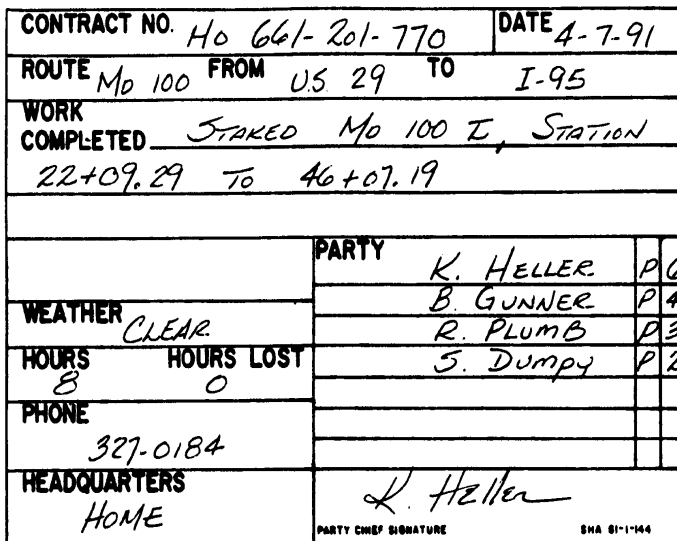 CONTRACT NO. Ho 661-201-770 DATE 4-7-91
ROUTE Md 100 FROM U.S. 29 TO I-95
WORK
COMPLETED STAKED Md 100 I, STATION
22+09.29 To 46+07.19
PARTY K. HELLER P 6
B. GUNNER P 4
WEATHER CLEAR R. PLUMB P 3
HOURS HOURS LOST S. Dumpy P 2
8 0
PHONE
327-0184
HEADQUARTERS K. Heller
HOME PARTY CHIEF SIGNATURE SHA 61-1-144